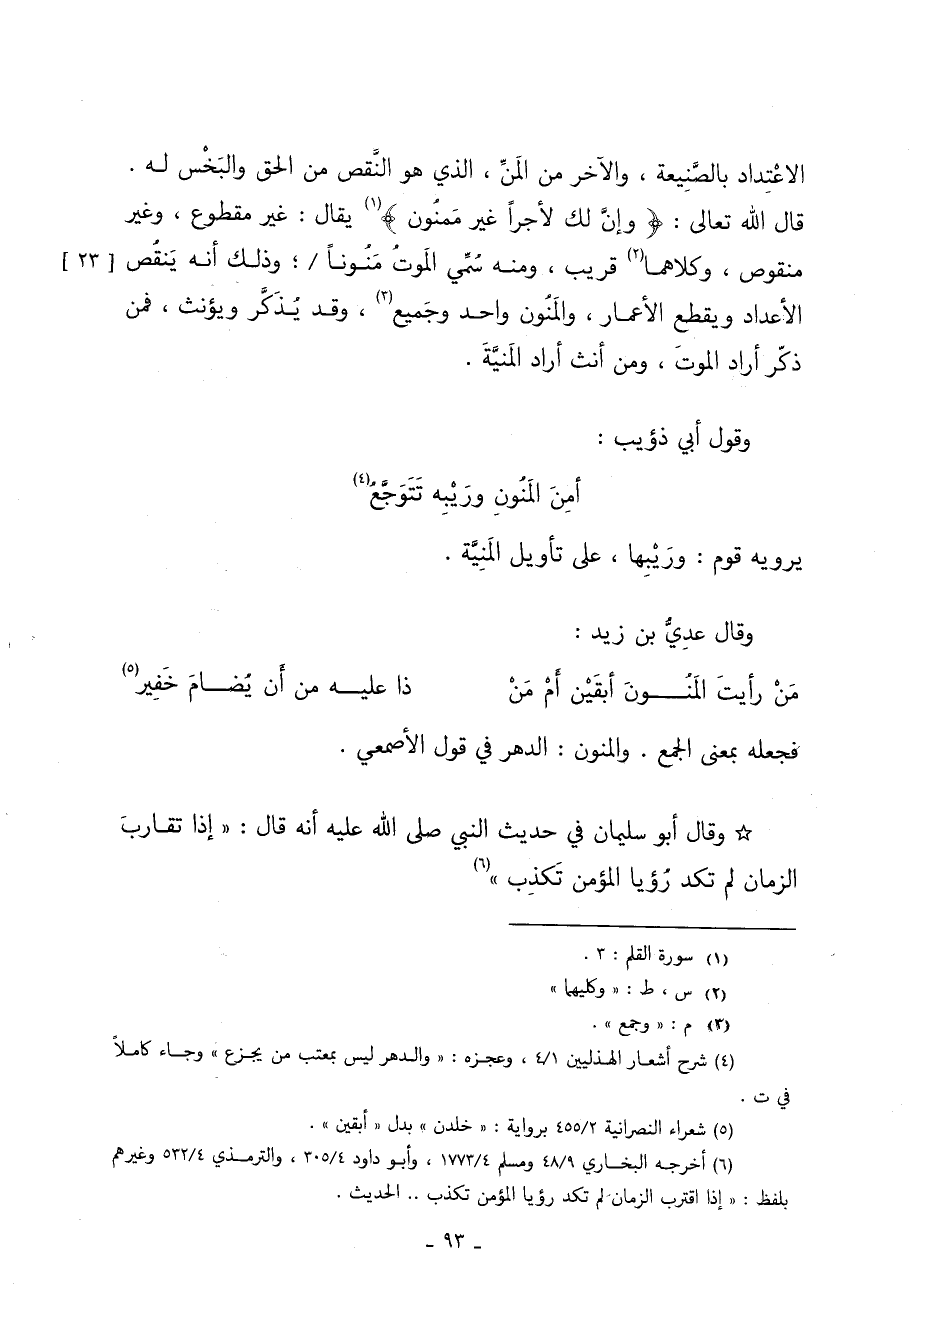 الاعْتداد بالصَّنيعة ، والآخر من المَنِّ ، الذي هو النَّقص من الحق والبَخْس لـه .
قال الله تعالى : ﴿ وإنَّ لك لأجراً غير مَمنُون ﴾(١) يقال : غير مقطوع ، وغير
منقوص ، وكلاهمـا(٢) قريب ، ومنـه سُمِّي الموتُ مَنُـونـاً / ؛ وذلـك أنـه يَنقُص [ ٢٣ ]
الأعداد ويقطع الأعمـار ، والمَنُون واحـد وجَميع(٣) ، وقـد يُـذكَّر ويؤنث ، فمن
ذكّر أراد الموتَ ، ومن أنث أراد المَنيَّةَ .
وقول أبي ذؤيب :
أمِنَ المَنُونِ ورَيْبِه تَتَوَجَّعُ(٤)
يرويه قوم : ورَيْبِها ، على تأويل المَنِيَّة .
وقال عديُّ بن زيد :
مَنْ رأيتَ المَنُـــونَ أبقَيْن أمْ مَنْ ذا عليـــه من أن يُضـــامَ خَفِير(٥)
فجعله بمعنى الجمع . والمنون : الدهر في قول الأصمعي .
☆ وقال أبو سليمان في حديث النبي صلى الله عليه أنه قال : « إذا تقـاربَ
الزمان لم تكد رُؤيا المؤمن تَكذِب »(٦)
(١) سورة القلم : ٣ .
(٢) س ، ط : « وكليهما »
(٣) م : « وجمع » .
(٤) شرح أشعـار الهـذليين ٤/١ ، وعجـزه : « والـدهر ليس بمعتب من يجـزع » وجـاء كاملاً
في ت .
(٥) شعراء النصرانية ٤٥٥/٢ برواية : « خلدن » بدل « أبقين » .
(٦) أخرجـه البخـاري ٤٨/٩ ومسلم ١٧٧٣/٤ ، وأبـو داود ٣٠٥/٤ ، والترمـذي ٥٣٢/٤ وغيرهم
بلفظ : « إذا اقترب الزمان لم تكد رؤيا المؤمن تكذب .. الحديث .
ـ ٩٣ ـ